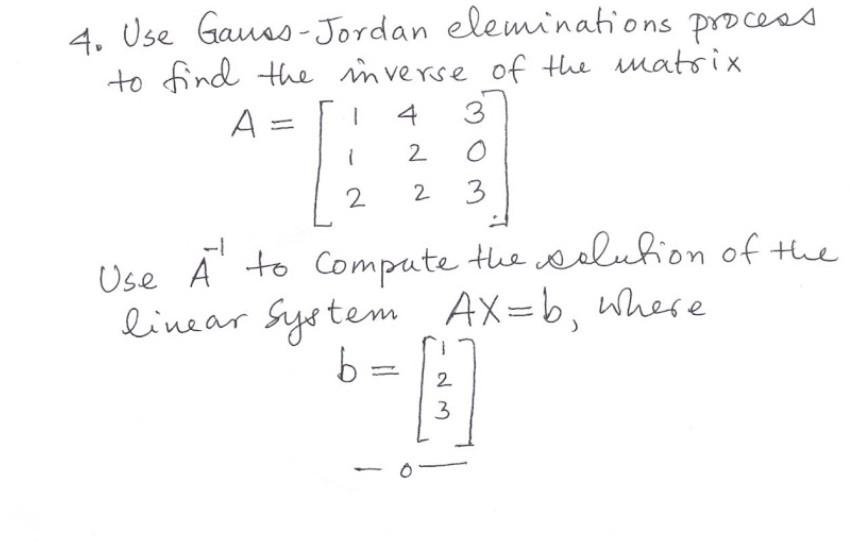 4. Use Gauss-Jordan eleminations process
to find the inverse of the matrix
A = [ 1 4 3
1 2 0
2 2 3 ]
Use A⁻¹ to Compute the solution of the
linear System AX=b, where
b = [ 1
2
3 ]
— 0 —